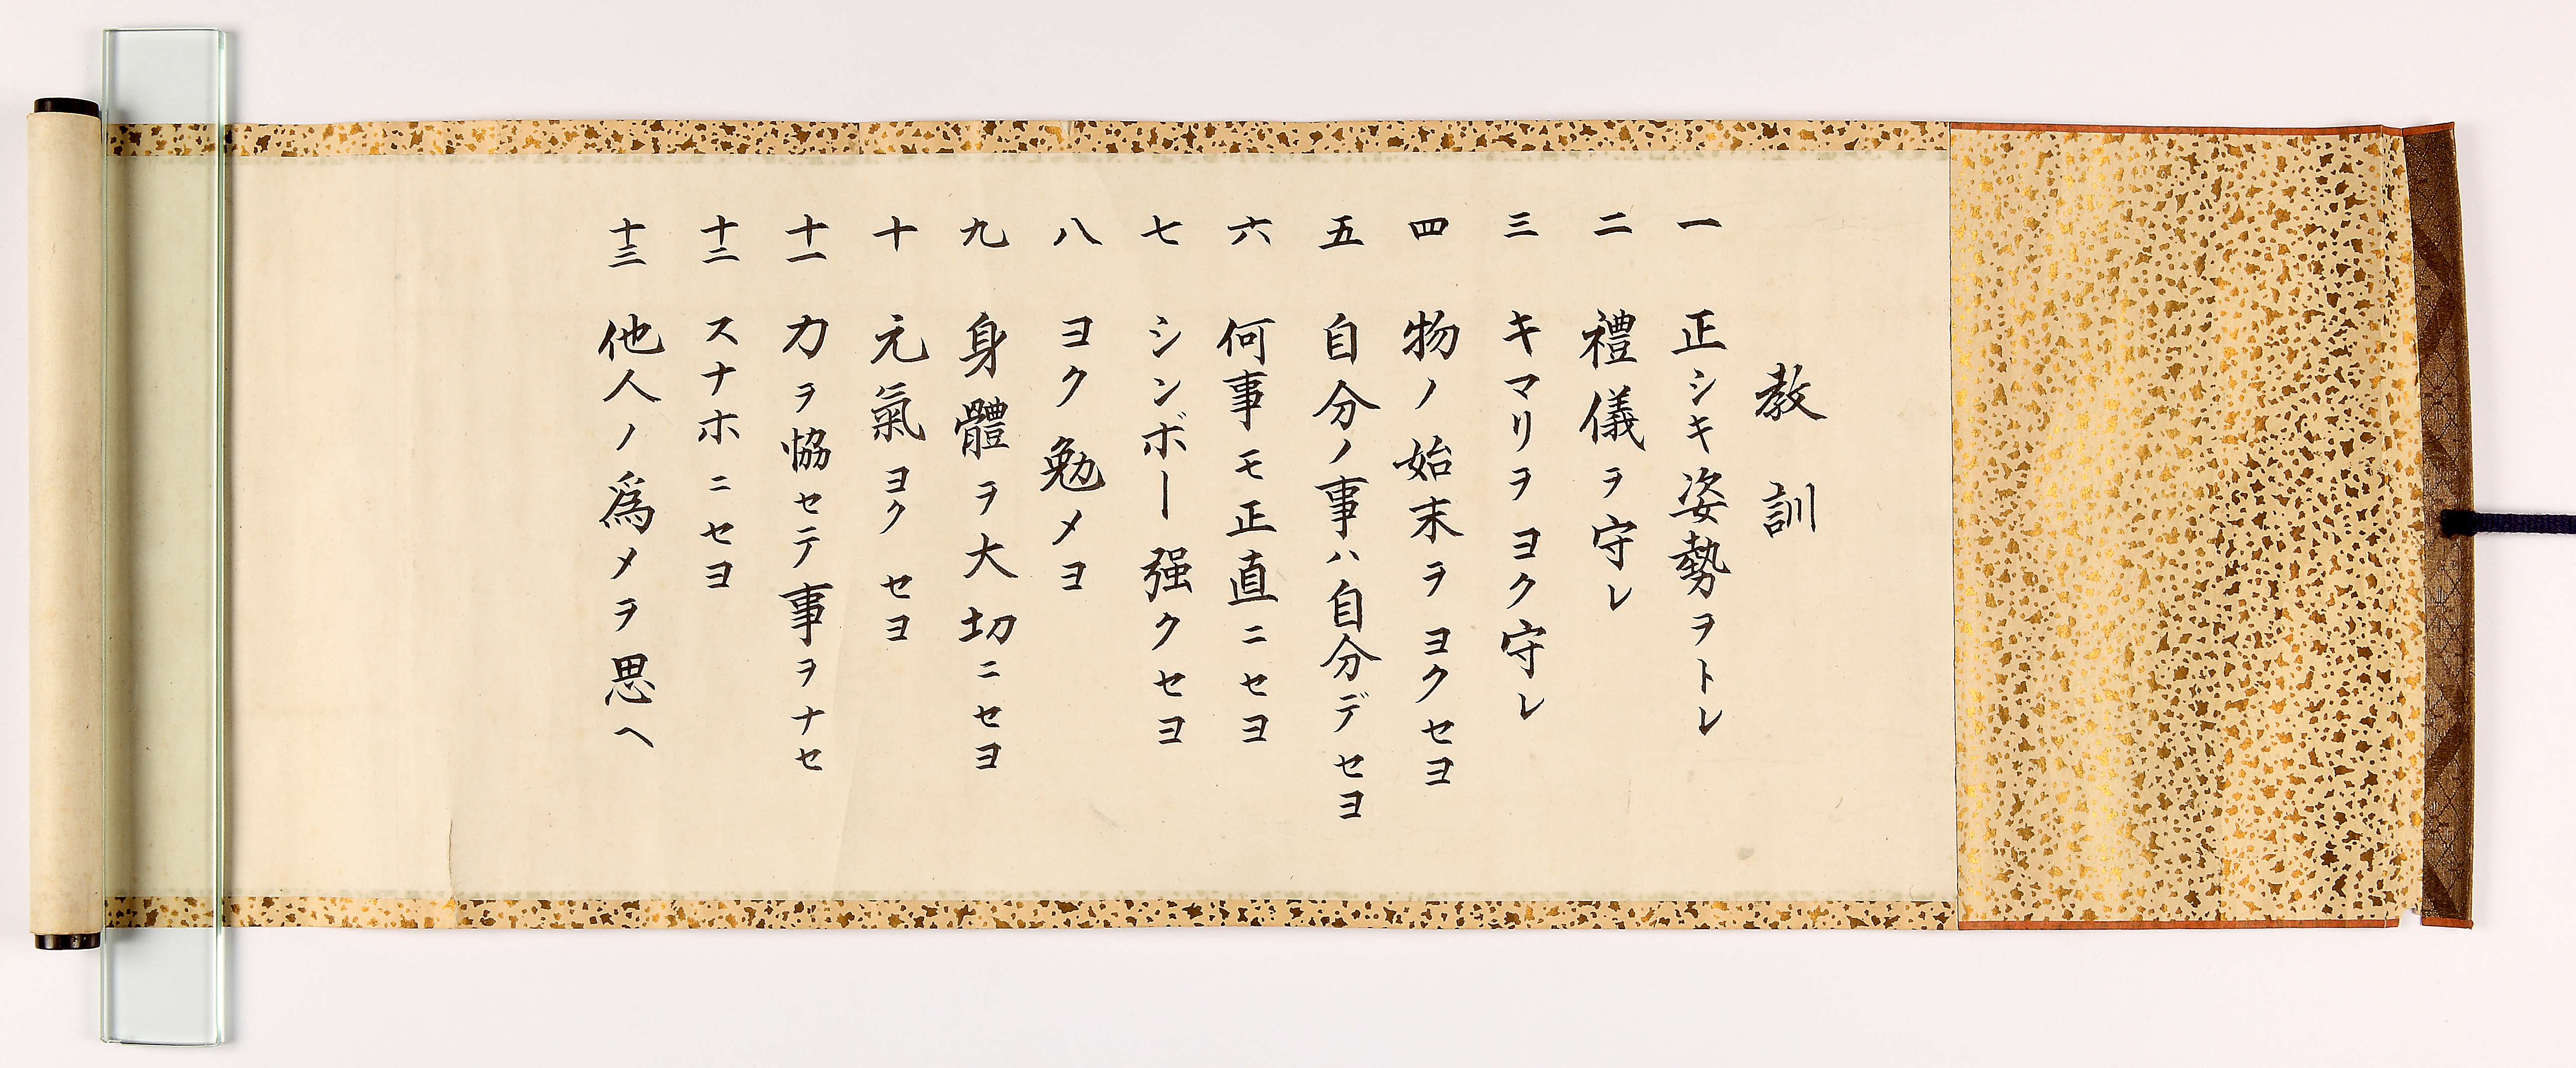 教訓
一 正シキ姿勢ヲトレ
二 禮儀ヲ守レ
三 キマリヲヨク守レ
四 物ノ始末ヲヨクセヨ
五 自分ノ事ハ自分デセヨ
六 何事モ正直ニセヨ
七 シンボー强クセヨ
八 ヨク勉メヨ
九 身體ヲ大切ニセヨ
十 元氣ヨクセヨ
十一 力ヲ協セテ事ヲナセ
十二 スナホニセヨ
十三 他人ノ爲メヲ思ヘ